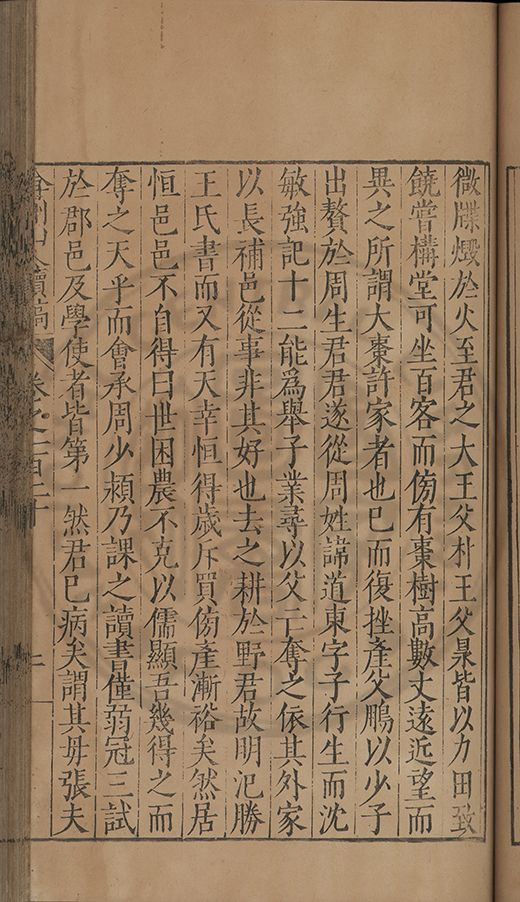 微牒燬於火至君之大王父朴王父杲皆以力田致
饒嘗搆堂可坐百客而傍有棗樹高數丈遠近望而
異之所謂大棗許家者也已而復挫產父鵬以少子
出贅於周生君君遂從周姓諱道東字子行生而沈
敏強記十二能爲舉子業尋以父亡奪之依其外家
以長補邑從事非其好也去之耕於野君故明氾勝
王氏書而又有天幸恒得歲斥買傍產漸裕矣然居
恒邑邑不自得曰世困農不克以儒顯吾幾得之而
奪之天乎而會承周少潁乃課之讀書僅弱冠三試
於郡邑及學使者皆第一然君已病矣謂其毋張夫
弇州山人續稿 卷之一百二十 二